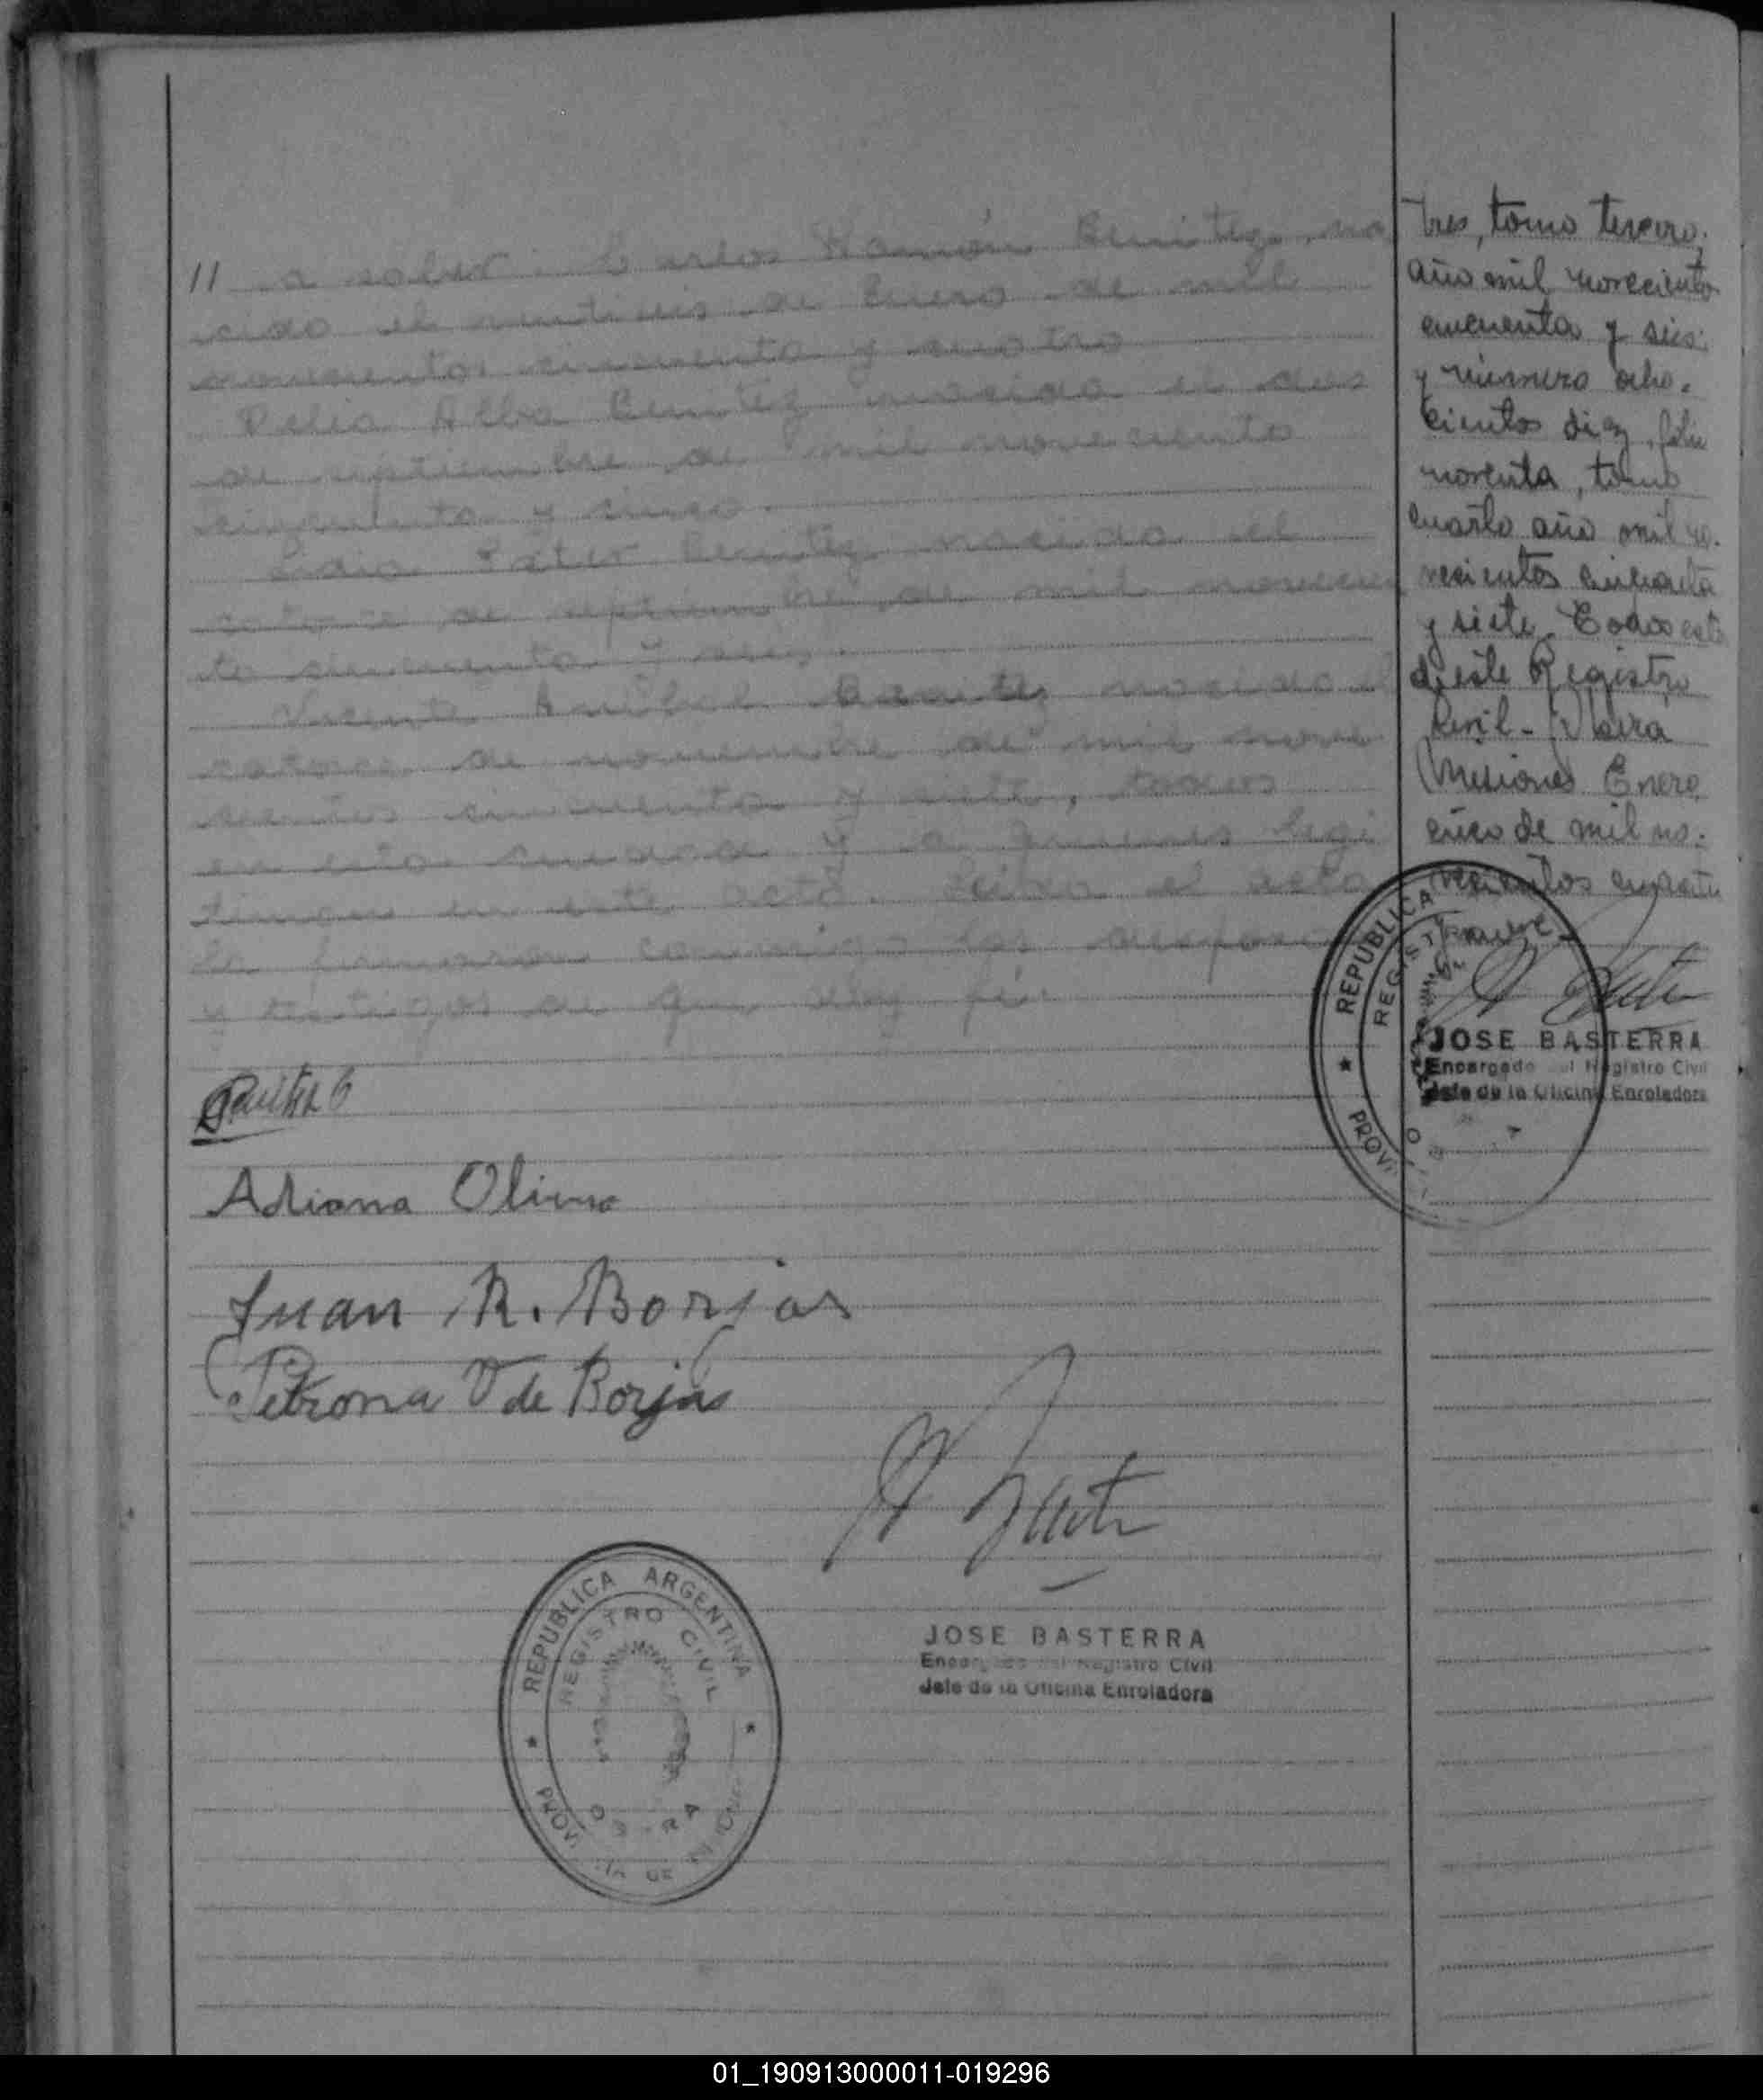 // a saber: Carlos Ramón Benitez, na
cido el veintiseis de Enero de mil
novecientos cincuenta y cuatro
Delia Alba Benitez nacida el dos
de septiembre de mil novecientos
cincuenta y cinco.
Ester Benitez nacida el
catorce de septiembre de mil novecien
tos cincuenta y seis.
Vicente Anibal Benitez nacido el
catorce de noviembre de mil nove
cientos cincuenta y siete, todos
en esta ciudad y a quienes legi
timan en este acto. Leida el acta
la firmaron conmigo los
y testigos de que doy fé.
Adriana Olivera
Juan R. Borjas
Petrona V de Borjas
JOSE BASTERRA
Encargado del Registro Civil
Jefe de la Oficina Enroladora
REPUBLICA ARGENTINA
REGISTRO CIVIL
OBERA
PROVINCIA DE MISIONES
tres, tomo tercero,
año mil novecientos
cincuenta y seis:
y número ocho-
cientos diez, folio
noventa, tomo
cuarto año mil no-
vecientos cincuenta
y siete. Todos
de este Registro
Civil - Obera
Misiones Enero
cinco de mil no-
vecientos
y nueve -
REPUBLICA
REGIST
PROVI
JOSE BASTERRA
Encargado del Registro Civil
Jefe de la Oficina Enroladora
01_190913000011-019296